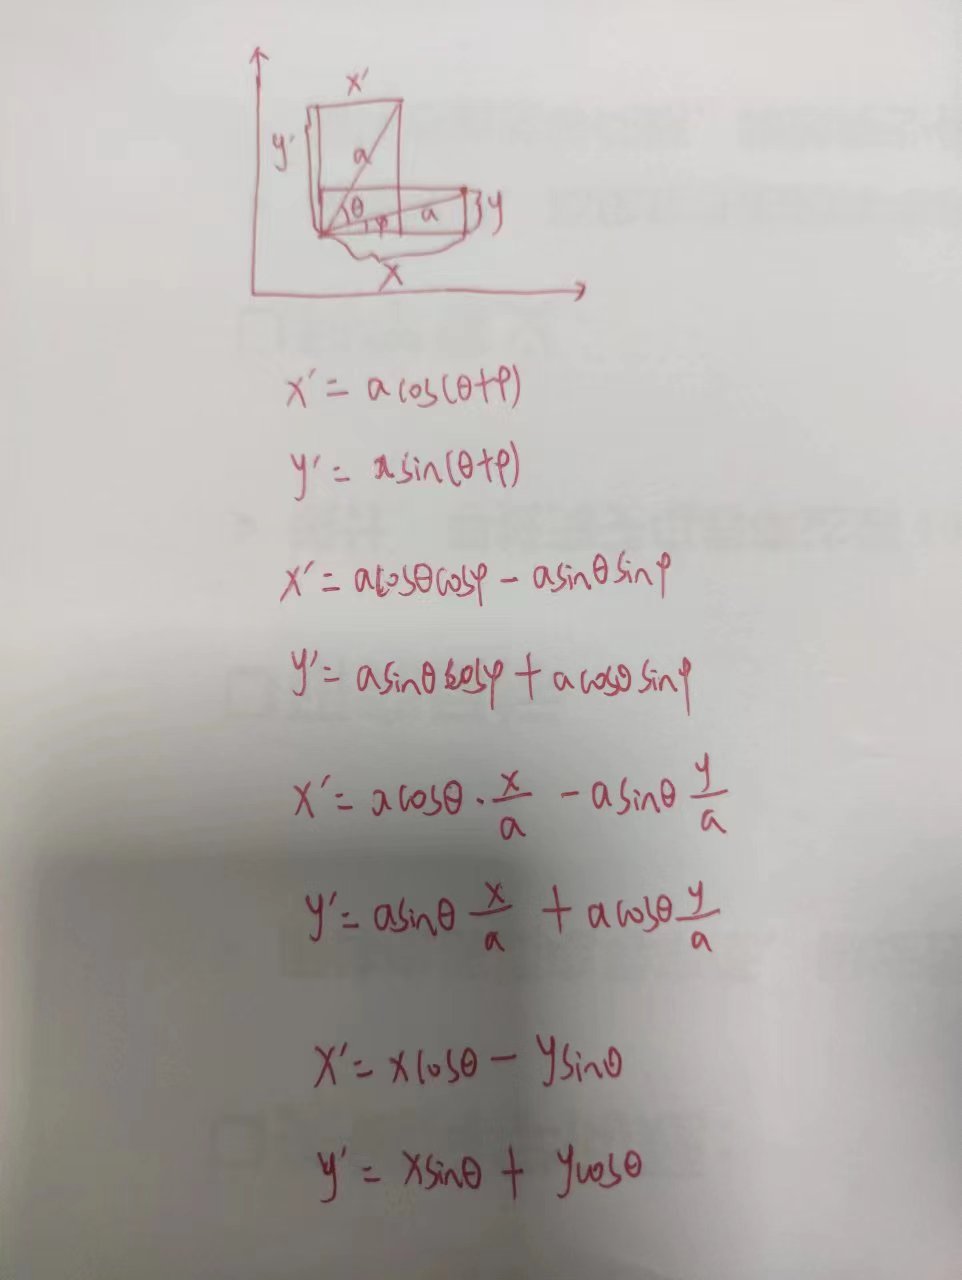 x'
y'
a
θ
φ
a
y
x
x' = a cos(θ+φ)
y' = a sin(θ+φ)
x' = a cosθ cosφ - a sinθ sinφ
y' = a sinθ cosφ + a cosθ sinφ
x' = a cosθ · x/a - a sinθ y/a
y' = a sinθ x/a + a cosθ y/a
x' = x cosθ - y sinθ
y' = x sinθ + y cosθ